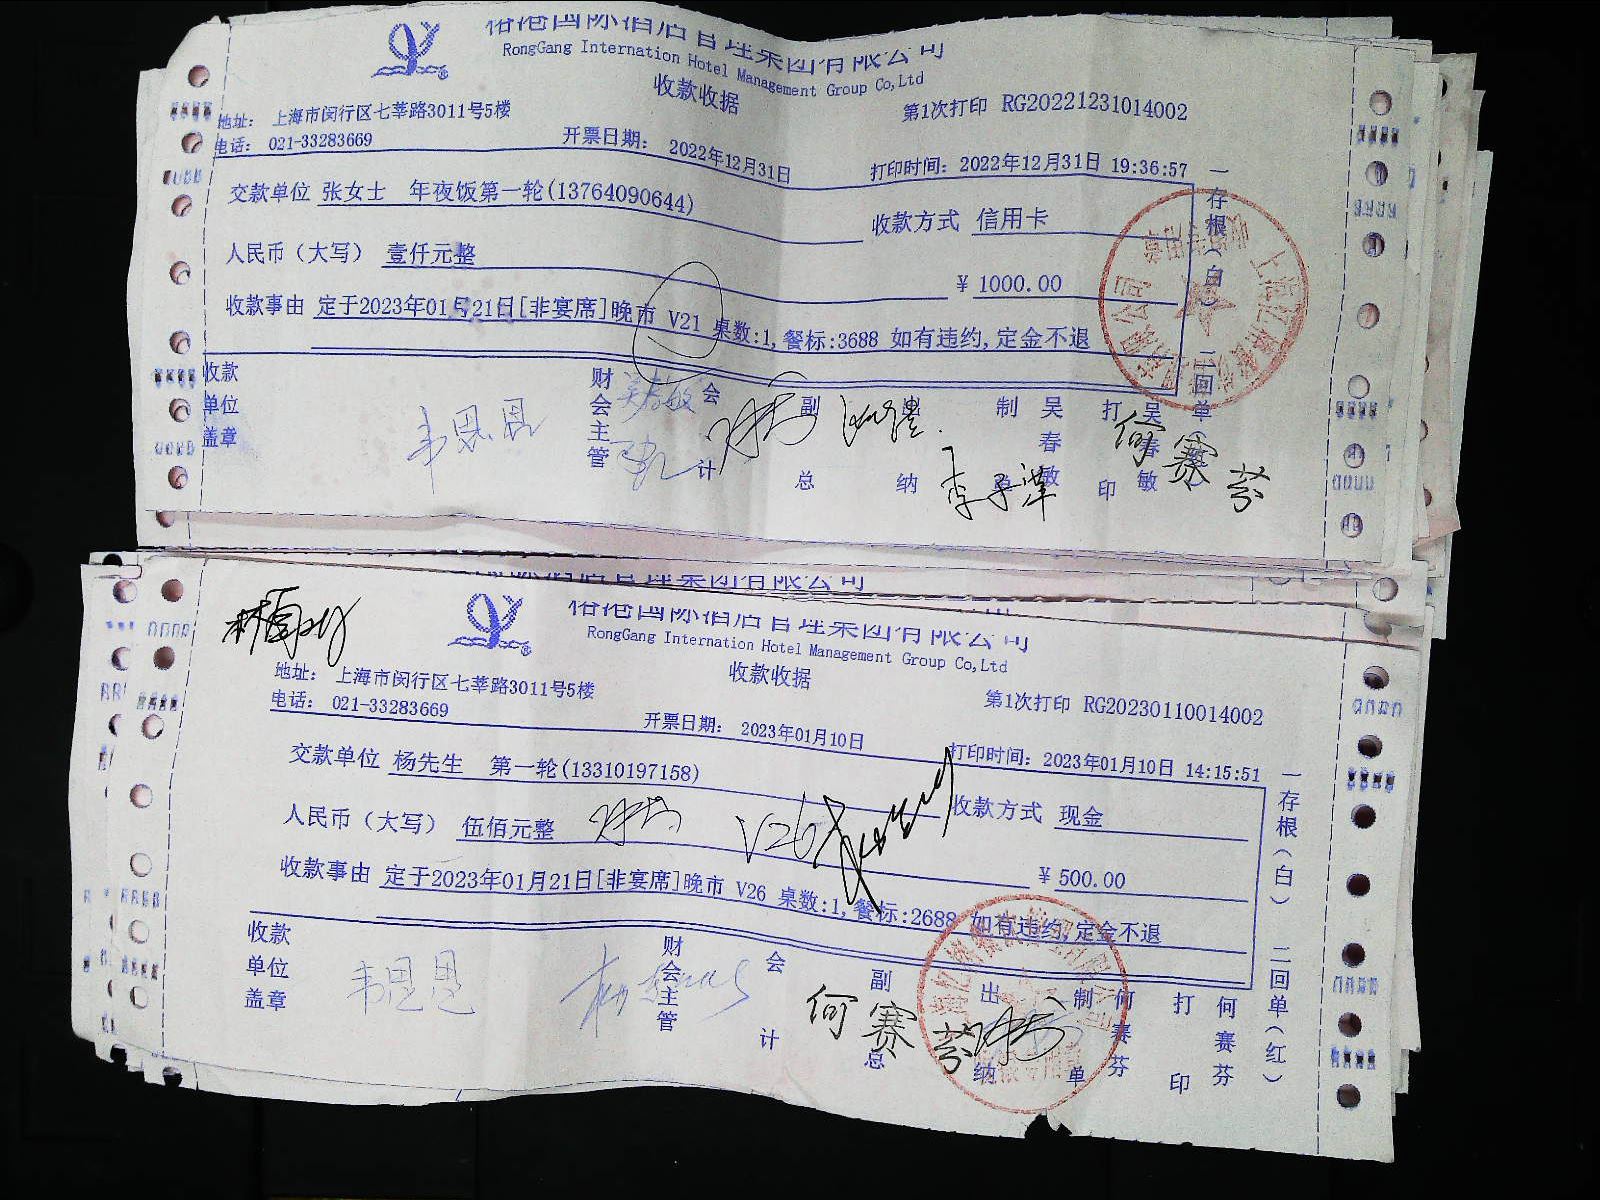 裕港国际酒店管理集团有限公司
RongGang Internation Hotel Management Group Co,Ltd
收款收据
地址: 上海市闵行区七莘路3011号5楼
第1次打印 RG20221231014002
电话: 021-33283669
开票日期: 2022年12月31日
打印时间: 2022年12月31日 19:36:57
交款单位 张女士 年夜饭第一轮(13764090644)
收款方式 信用卡
人民币（大写） 壹仟元整
¥ 1000.00
收款事由 定于2023年01月21日[非宴席]晚市 V21 桌数:1, 餐标:3688 如有违约, 定金不退
一存根（白） 二回单
收款单位盖章
韦思恩
财会主管
会计
副总
出纳
制单
吴春敏
打印
吴春敏
李子潭
何赛芬
裕港国际酒店管理集团有限公司
RongGang Internation Hotel Management Group Co,Ltd
收款收据
地址: 上海市闵行区七莘路3011号5楼
第1次打印 RG20230110014002
电话: 021-33283669
开票日期: 2023年01月10日
打印时间: 2023年01月10日 14:15:51
交款单位 杨先生 第一轮(13310197158)
收款方式 现金
人民币（大写） 伍佰元整
V26
¥ 500.00
收款事由 定于2023年01月21日[非宴席]晚市 V26 桌数:1, 餐标:2688 如有违约, 定金不退
一存根（白） 二回单（红）
收款单位盖章
韦思恩
财会主管
会计
副总
何赛芬
出纳
制单
何赛芬
打印
何赛芬